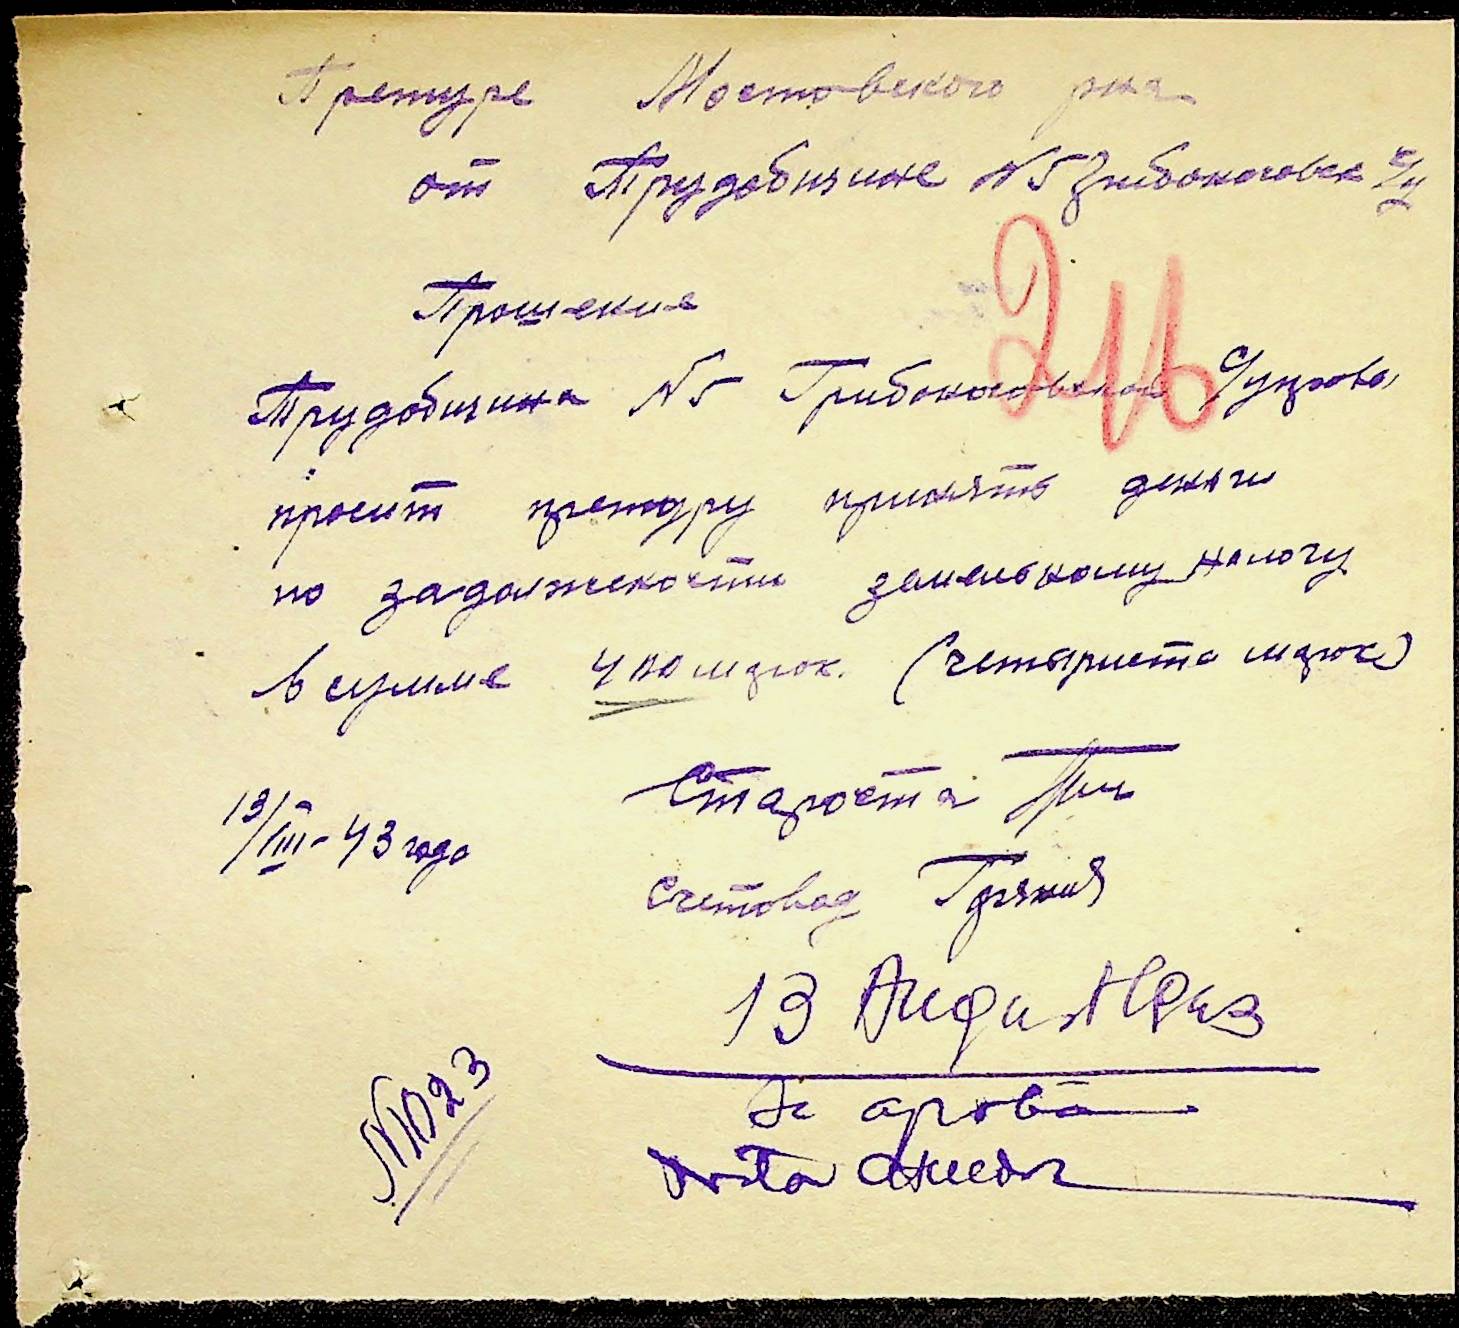 Претуре Мостовского рна
от Трудобщине N5 Грибоносовск с/у
Прошения
Трудобщина N5 Грибоносовской с/управа
просит претуру принять деньги
по задолжености земельному налогу
в сумме 400 марок. (четыриста марок)
Староста
13/III-43 года
Счетовод
13 943
N1023